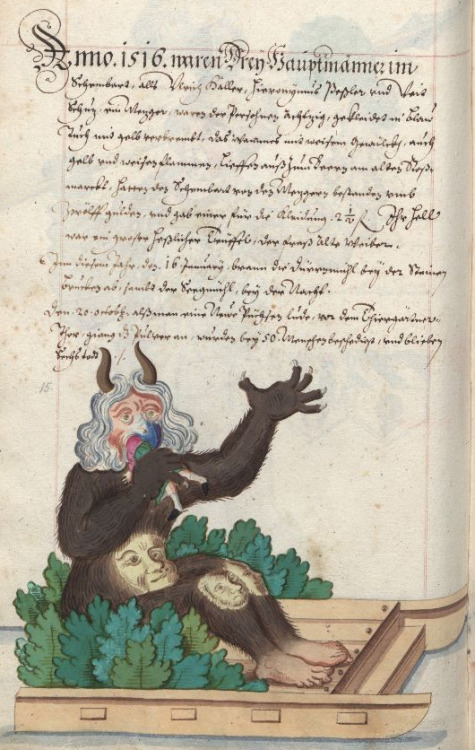 Anno. 1516. waren Drey Hauptmänner im
Schembart, alls Ulrich Haller, Hieronymus und Veit
ein Metzger, waren der Persohnen Achtzig, gekleidet in blau
tuch und gelb verbrembt, das Wammes mit weisem auch
gelb und weisen flammen, Lieffen auß zum am alten Roß-
marckt, hatten den Schembart von den Metzgern bestanden umb
zwölff gulden, und gab einer für die Kleidung. 2½ Ihr Höll
war ein groser Heßlicher Teüffel, der fraß alte Weiber.
In diesem Jahr. den. 16 January, brann die Dürrmühl bey der Steinen
brucken ab, sambt der Segmühl, bey der Nacht.
Den. 20. octobr. alß man eine Neue Püchsen lude, vor dem Thiergärtner-
Thor, gieng dz Pulver an, wurden bey 50. Menschen beschedigt, und blieben
Sechs todt
15.